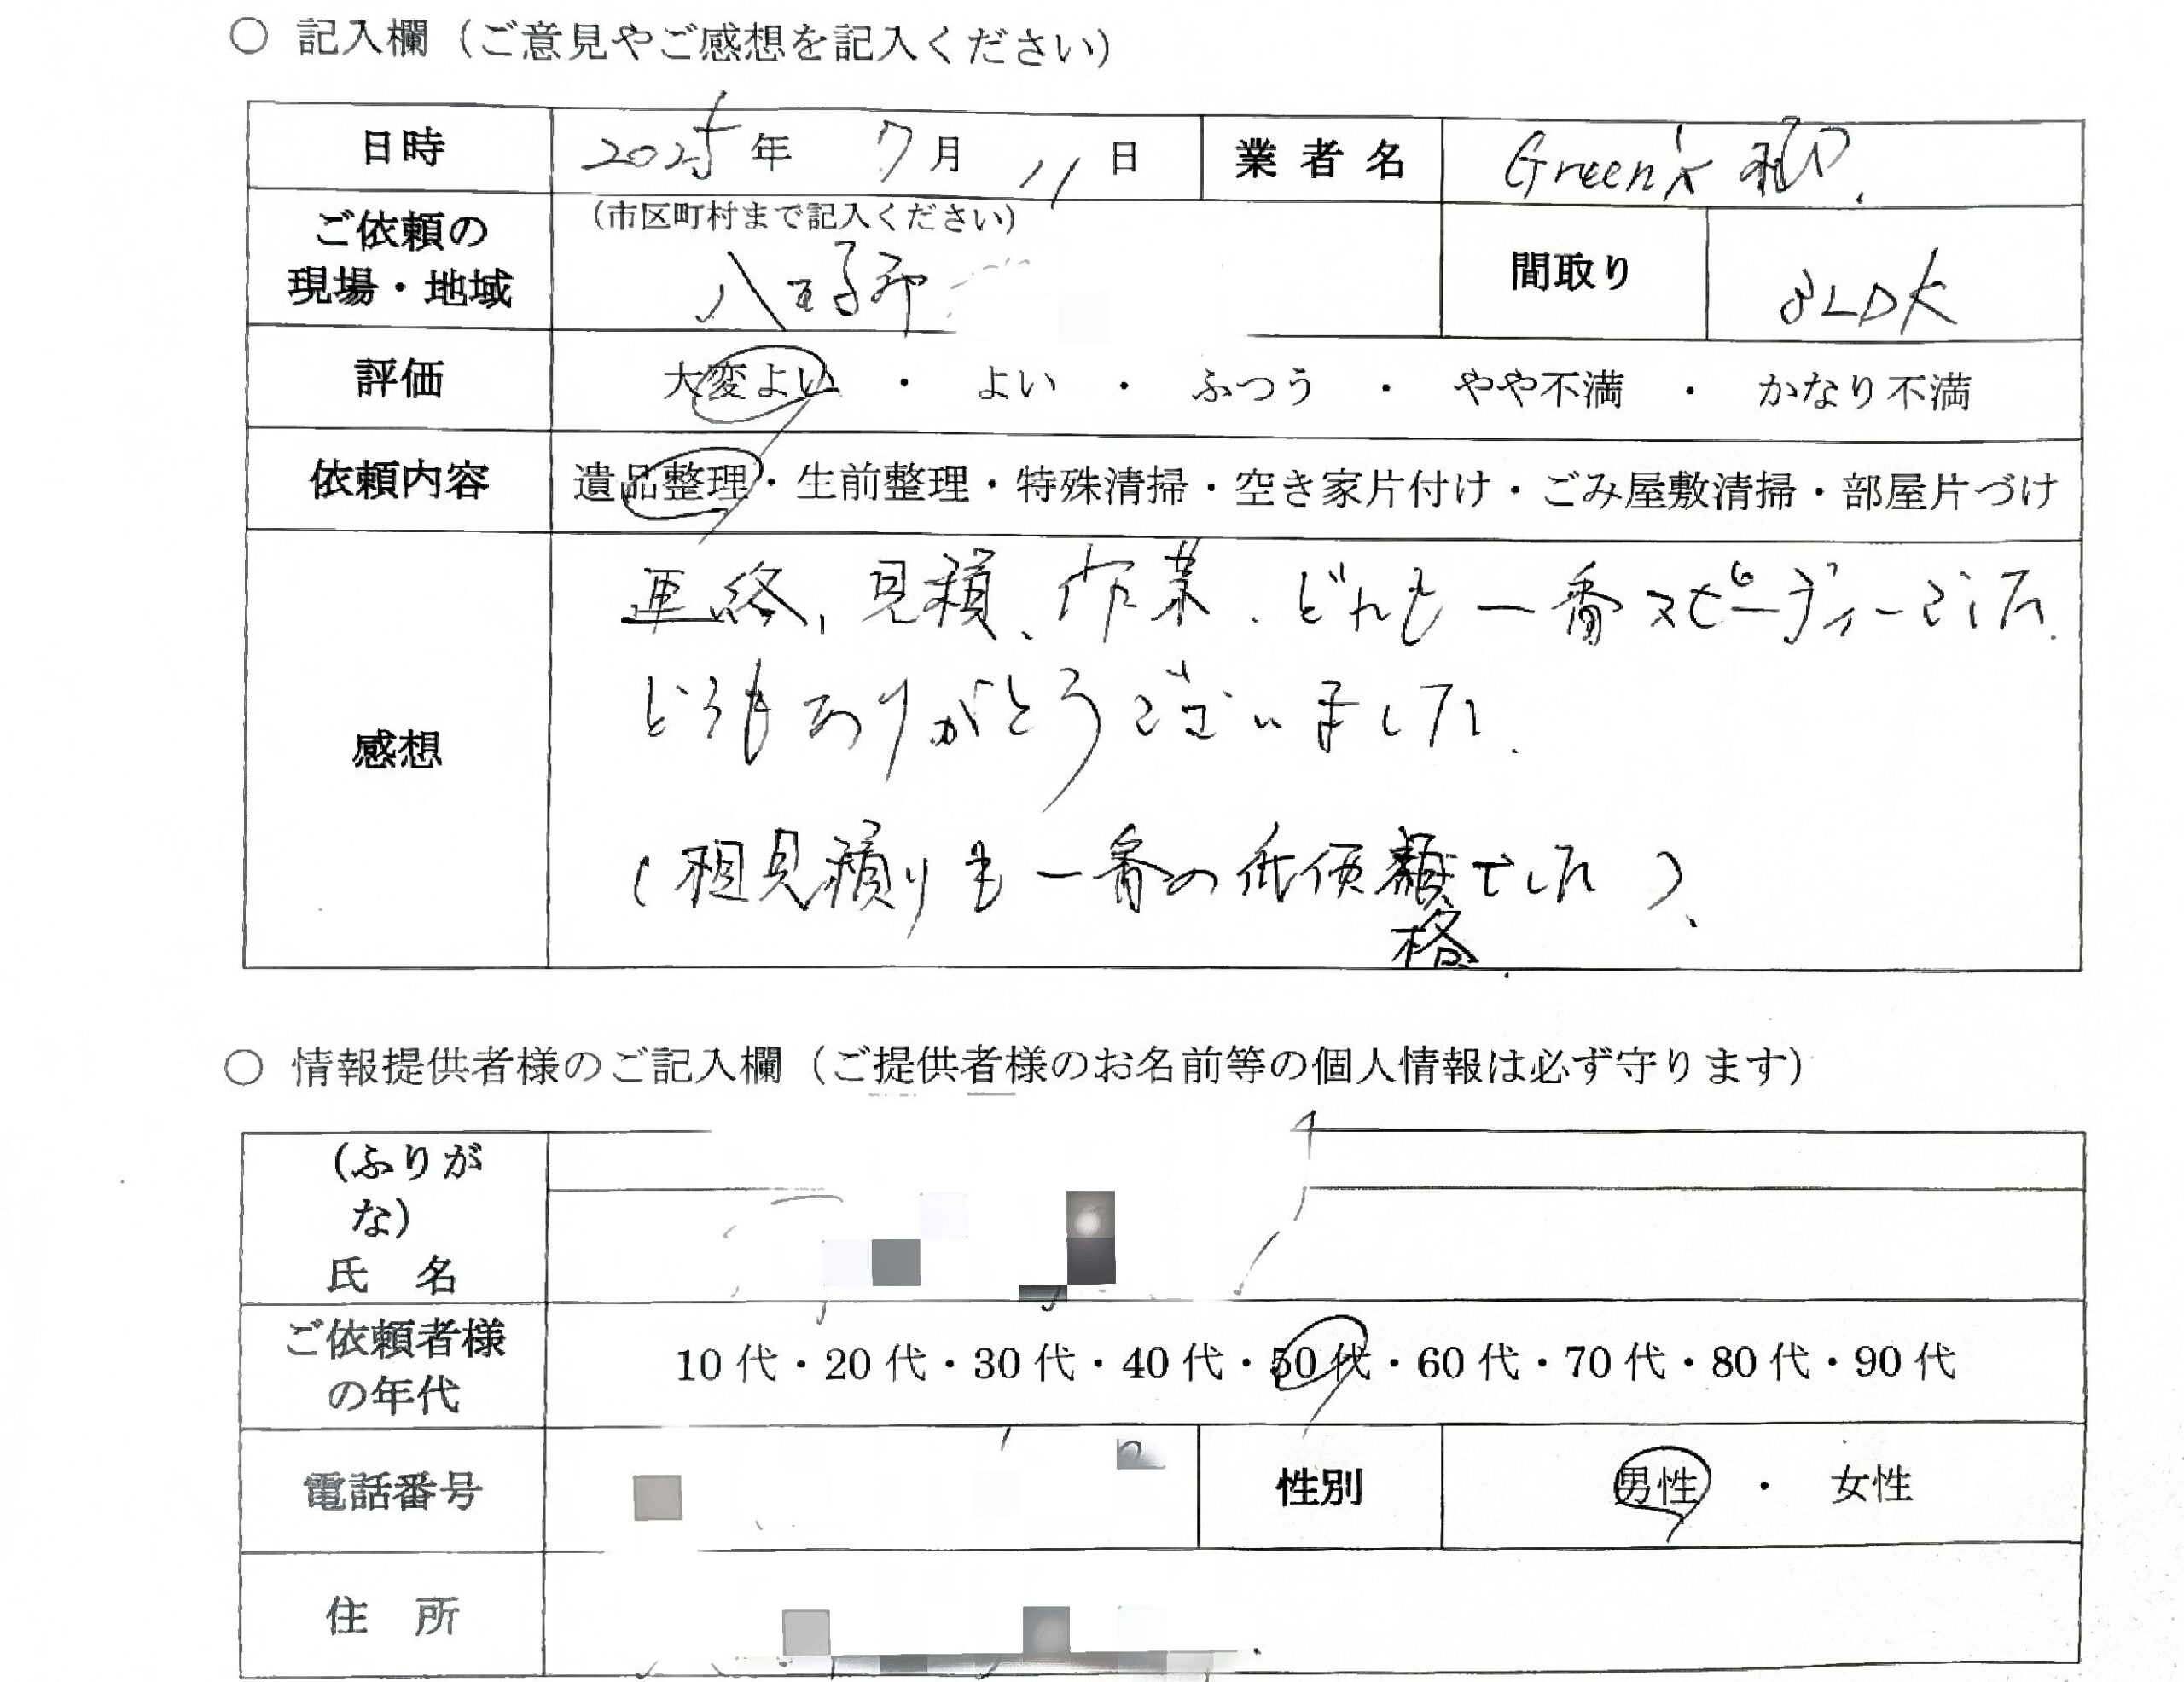 ○ 記入欄（ご意見やご感想を記入ください）
日時 2025年 7月 11日 業者名 Green's
ご依頼の現場・地域 （市区町村まで記入ください） 八王子市 間取り LDK
評価 大変よい ・ よい ・ ふつう ・ やや不満 ・ かなり不満
依頼内容 遺品整理・生前整理・特殊清掃・空き家片付け・ごみ屋敷清掃・部屋片づけ
感想
連絡、見積、作業、どれも一番スピーディーでした。
どうもありがとうございました。
（相見積りも一番の低価額でした）、
格
○ 情報提供者様のご記入欄（ご提供者様のお名前等の個人情報は必ず守ります）
（ふりがな）
氏 名
ご依頼者様の年代 10代・20代・30代・40代・50代・60代・70代・80代・90代
電話番号 性別 男性 ・ 女性
住 所